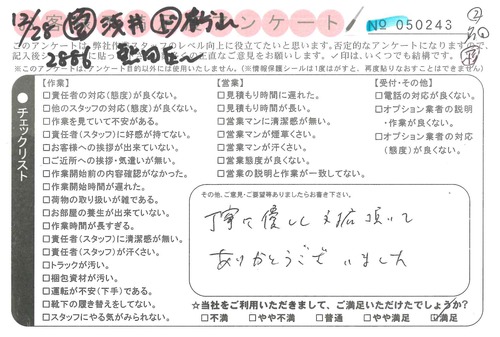 お客様 アンケート
12/28 浅井
2886
No 050243
このアンケートは、弊社スタッフのレベル向上に役立てたいと思います。否定的なアンケートになりますので、
※このアンケートはアンケート目的以外には使用いたしません。(※情報保護シールは1度はがすと、再度貼りなおすことはできません)
チェックリスト
【作業】
□責任者の対応(態度)が良くない。
□他のスタッフの対応(態度)が良くない。
□作業を見ていて不安がある。
□責任者(スタッフ)に好感が持てない。
□お客様への挨拶が出来ていない。
□ご近所への挨拶・気遣いが無い。
□作業開始前の内容確認がなかった。
□作業開始時間が遅れた。
□荷物の取り扱いが雑である。
□お部屋の養生が出来ていない。
□作業時間が長すぎる。
□責任者(スタッフ)に清潔感が無い。
□責任者(スタッフ)が汗くさい。
□トラックが汚い。
□梱包資材が汚い。
□運転が不安(下手)である。
□靴下の履き替えをしてない。
□スタッフにやる気がみられない。
【営業】
□見積もり時間に遅れた。
□見積もり時間が長い。
□営業マンに清潔感が無い。
□営業マンが煙草くさい。
□営業マンが汗くさい。
□営業態度が良くない。
□営業の説明と作業が一致してない。
【受付・その他】
□電話の対応が良くない。
□オプション業者の説明
・作業が良くない。
□オプション業者の対応
(態度)が良くない。
その他、ご意見・ご要望等ありましたらお書き下さい。
丁寧で優しく対応頂いて
ありがとうございました
☆当社をご利用いただきまして、ご満足いただけたでしょうか?
□不満 □やや不満 □普通 □やや満足 ☑満足